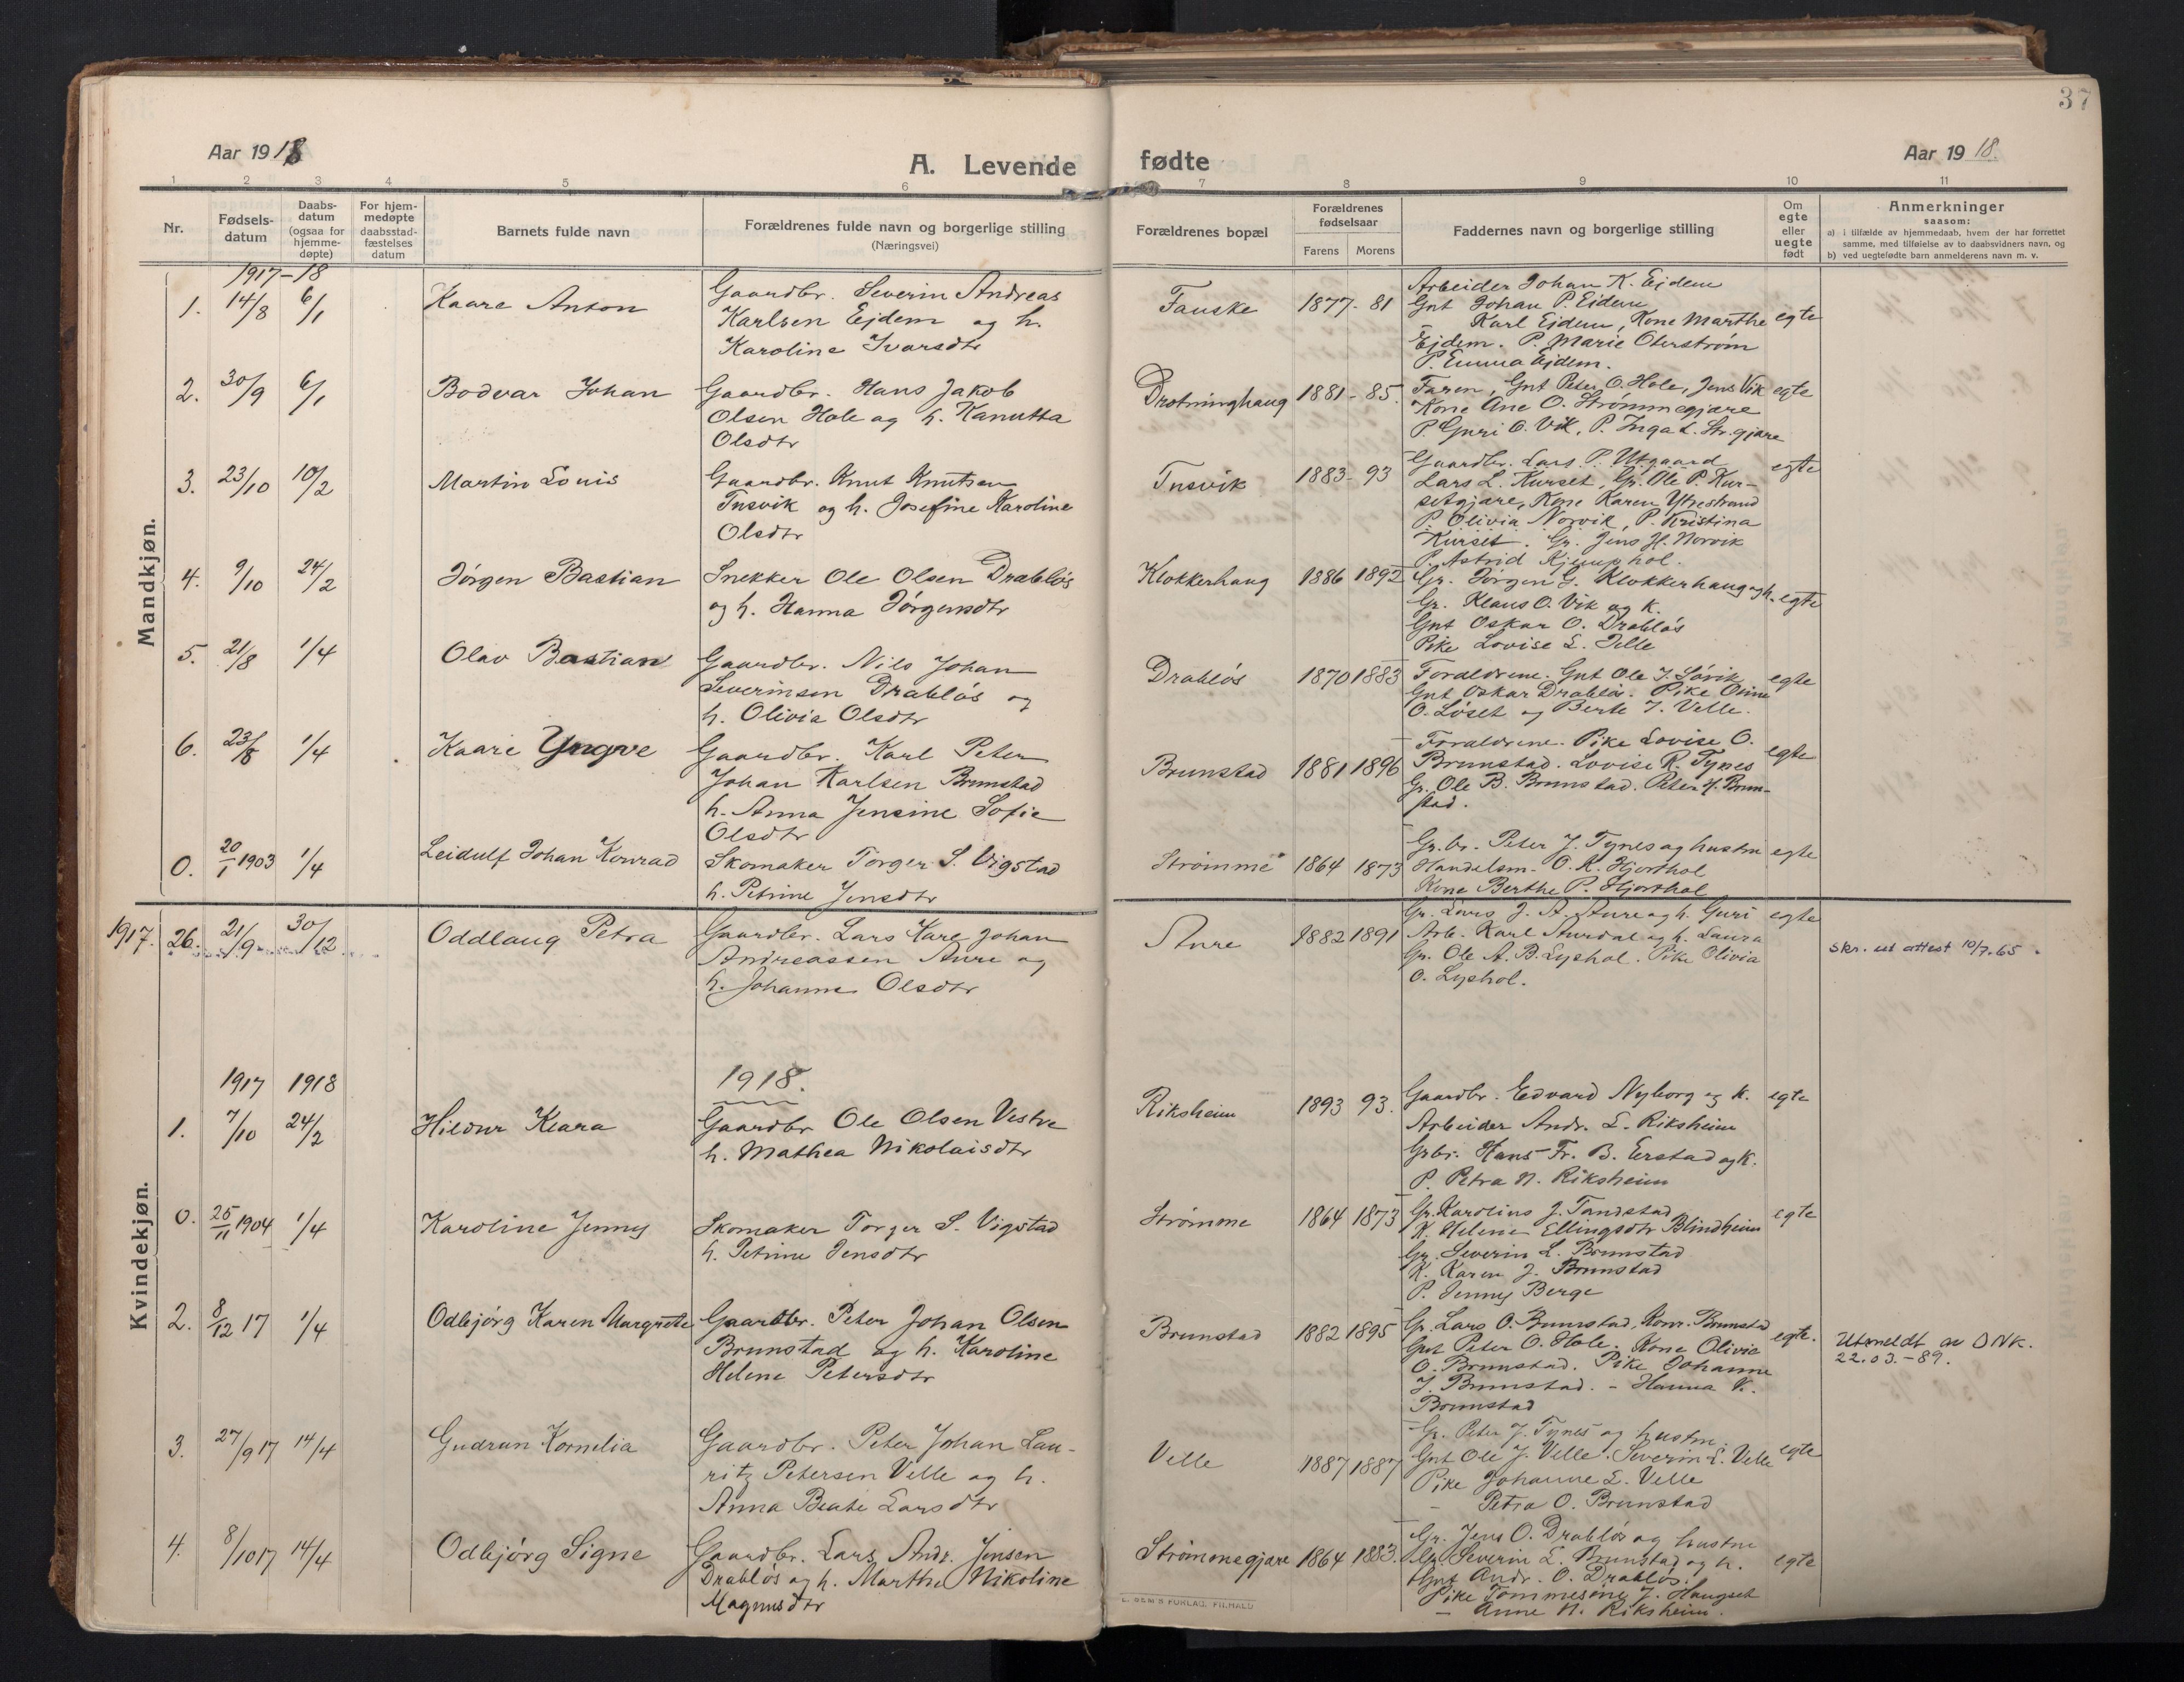 37
Aar 1918
A. Levende fødte
Aar 1918.
1 2 3 4 5 6 7 8 9 10 11
Nr.
Fødsels-
datum
Daabs-
datum
(ogsaa for
hjemme-
døpte)
For hjem-
medøpte
daabsstad-
fæstelses
datum
Barnets fulde navn
Forældrenes fulde navn og borgerlige stilling
(Næringsvei)
Forældrenes bopæl
Forældrenes
fødselsaar
Farens Morens
Faddernes navn og borgerlige stilling
Om
egte
eller
uegte
født
Anmerkninger
saasom:
a) i tilfælde av hjemmedaab, hvem der har forrettet
samme, med tilføielse av to daabsvidners navn, og
b) ved uegtefødte barn anmelderens navn m. v.
Mandkjøn.
1917-18
1. 14/8 6/1 Kaare Anton
Gaardbr. Severin Andreas
Karlsen Ejdem og h.
Karoline Ivarsdtr
Fauske 1877-81
Arbeider Johan K. Ejdem
Gnt Johan P. Ejdem
- Karl Ejdem, Kone Marthe
Ejdem. P. Marie Oterstrøm
P. Emma Ejdem.
egte
2. 30/9 6/1 Bodvar Johan
Gaardbr. Hans Jakob
Olsen Hole og h. Kanutta
Olsdtr
Drotninghaug 1881-85.
Faren, Gnt Peter O. Hole, Jens Vik
Kone Ane O. Strømmegjære
P. Guri O. Vik, P. Inga L. Str.gjære
egte
3. 23/10 10/2 Martin Louis
Gaardbr. Knut Knutsen
Tusvik og h. Josefine Karoline
Olsdtr
Tusvik 1883-93
Gaardbr. Lars P. Utgaard
Lars L. Kurset, Gr. Ole P. Kur-
setgjære, Kone Karen Ytrestrand
P. Olivia Norvik, P. Kristina
Kurset. Gr. Jens H. Norvik
P. Astrid Kjemphol.
egte
4. 9/10 24/2 Jørgen Bastian
Snekker Ole Olsen Drabløs
og h. Hanna Jørgensdtr
Klokkerhaug 1886 1892
Gr. Jørgen G. Klokkerhaug og h.
Gr. Klaus O. Vik og k.
Gnt Oskar O. Drabløs
Pike Lovise L. Velle
egte
5. 21/8 1/4 Olav Bastian
Gaardbr. Nils Johan
Severinsen Drabløs og
h. Olivia Olsdtr
Drabløs 1870 1883
Forældrene. Gnt Ole J. Løvik
Gnt Oskar Drabløs. Pike Oline
O. Løset og Berte J. Velle.
egte
6. 23/8 1/4 Kaare Yngve
Gaardbr. Karl Peter
Johan Karlsen Brunstad
h. Anna Jensine Sofie
Olsdtr
Brunstad 1881 1896
Forældrene. Pike Lovise O.
Brunstad. Lovise R. Tynes
Gr. Ole B. Brunstad. Peter J. Brun-
stad.
egte
0. 20/1 1903 1/4 Leidulf Johan Konrad
Skomaker Torger S. Vigstad
h. Petrine Jensdtr
Strømme 1864 1873
Gr.br. Peter J. Tynes og hustru
Handelsm. O. K. Hjorthol
Kone Berthe P. Hjorthol
egte
1917. 26. 21/9 30/12 Oddlaug Petra
Gaardbr. Lars Kare Johan
Andreassen Aure og
h. Johanne Olsdtr
Aure 1882 1891
Gr. Lars J. A. Aure og h. Guri
Arb. Karl Aurdal og h. Laura
Gr. Ole A. B. Lyshol. Pike Olivia
O. Lyshol.
egte
Skr. ut attest 10/7.65.
Kvindekjøn.
1917 1918
1918.
1. 7/10 24/2 Hildur Klara
Gaardbr Ole Olsen Vestre
h. Mathea Nikolaisdtr
Riksheim 1893 93.
Gaardbr. Edvard Nyborg og k.
Arbeider Andr. L. Riksheim
Grbr. Hans Fr. B. Erstad og k.
P. Petra N. Riksheim
egte
0. 25/11 1904 1/4 Karoline Jenny
Skomaker Torger S. Vigstad
h. Petrine Jensdtr
Strømme 1864 1873
Gr. Karolius J. Tandstad
K. Helene Ellingsdtr Blindheim
Gr. Severin L. Brunstad
K. Karen J. Brunstad
P. Jenny Berge
egte
2. 8/12 17 1/4 Odbjørg Karen Margrete
Gaardbr. Peter Johan Olsen
Brunstad og h. Karoline
Helene Petersdtr
Brunstad 1882 1895
Gr. Lars O. Brunstad, Konr. Brunstad
Gnt Peter O. Hole. Kone Olivia
O. Brunstad. Pike Johanne
J. Brunstad. - Hanna K.
Brunstad
egte.
Utmeldt av DNK.
22.03.-89.
3. 27/9 17 14/4 Gudrun Kornelia
Gaardbr. Peter Johan Lau-
ritz Petersen Velle og h.
Anna Beate Larsdtr
Velle 1887 1887
Gr. Peter J. Tynes og hustru.
Gnt Ole J. Velle. Severin L. Velle
Pike Johanne L. Velle
- Petra O. Brunstad
egte
4. 8/10 17 14/4 Odbjørg Signe
Gaardbr. Lars Andr. Jensen
Drabløs og h. Marthe Nikoline
Magnusdtr
Strømmegjære 1864 1883.
Gr. Jens O. Drabløs og hustru
Gr. Severin L. Brunstad og h.
Gnt Andr. O. Drabløs.
Pike Tommesine J. Haugset
- Anne N. Riksheim.
egte
E. SEM'S FORLAG, FR.HALD